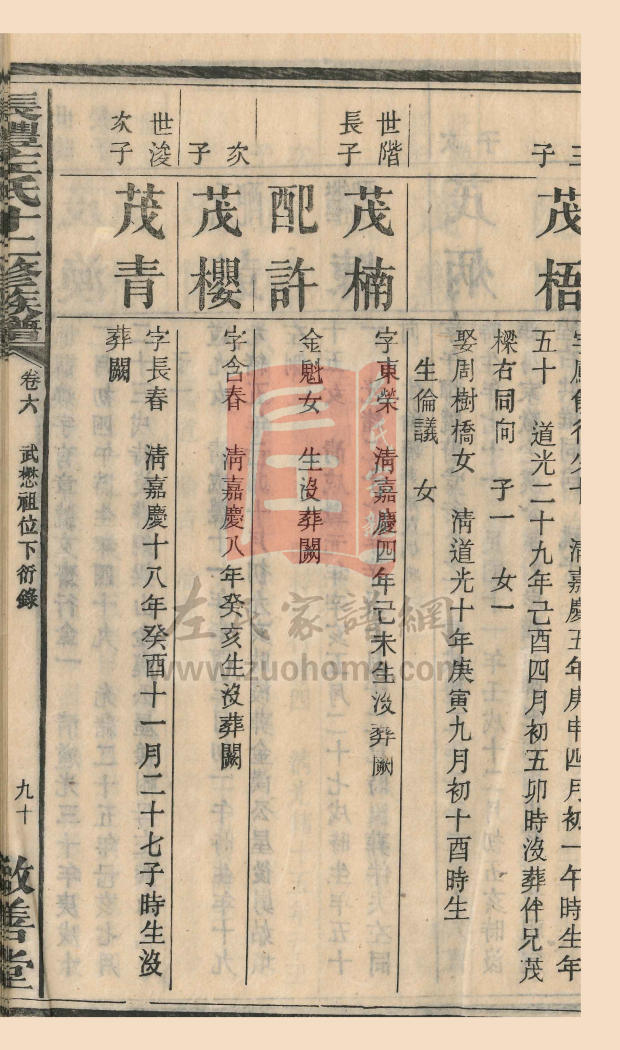 三子
茂梧
清嘉慶五年庚申四月初一午時生年
五十 道光二十九年己酉四月初五卯時沒葬伴兄茂
樑右同向 子一 女一
娶周樹橋女 清道光十年庚寅九月初十酉時生
生倫議 女
世階長子
茂楠
字東榮 清嘉慶四年己未生沒葬闕
配許
金魁女 生沒葬闕
次子
茂櫻
字含春 清嘉慶八年癸亥生沒葬闕
世浚次子
茂青
字長春 清嘉慶十八年癸酉十一月二十七子時生沒
葬闕
長澧左氏十二修族譜 卷六 武懋祖位下衍錄 九十 敘善堂
左氏家譜網
www.zuohome.com